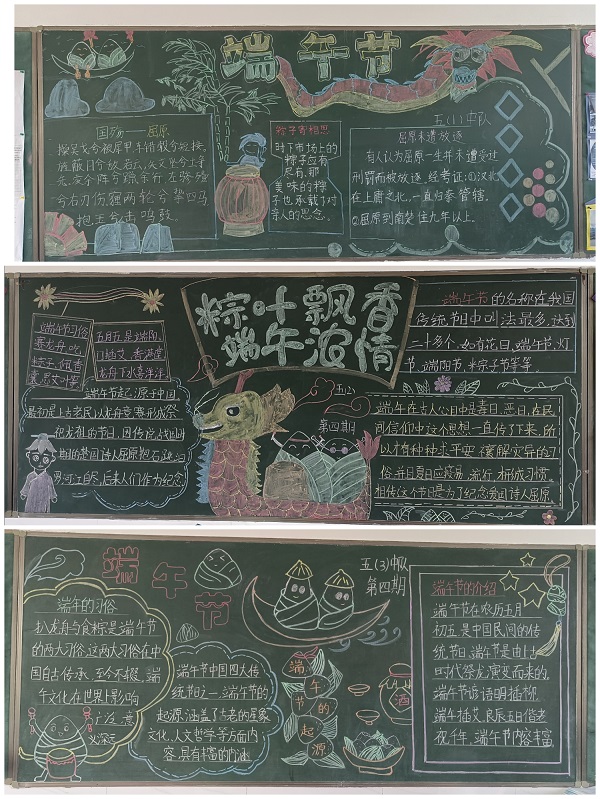 端午节
五(1)中队
国殇——屈原
操吴戈兮被犀甲,车错毂兮短接。
旌蔽日兮敌若云,矢交坠兮士争
先。凌余阵兮躐余行,左骖殪
兮右刃伤。霾两轮兮絷四马,
抱玉兮击鸣鼓。
粽子寄相思
时下市场上的
粽子应有
尽有,那
美味的粽
子也承载了对
亲人的思念。
屈原未遭放逐
有人认为屈原一生并未遭受过
刑罚而被放逐。经考证:①汉北
在上庸之北,一直归秦管辖。
②屈原到南楚住九年以上。
粽叶飘香
端午浓情
五(2)
第四期
端午节习俗
赛龙舟,吃
粽子,佩香
囊,
五月五,是端阳。
门插艾,香满堂
龙舟下水喜洋洋
端午节起源于中国
最初是上古老民以龙舟竞赛形成祭
祀龙祖的节日。因传说战国时
期的楚国诗人屈原抱石跳
汨罗江自尽,后来人们作为纪念
端午节的名称在我国
传统节日中叫法最多,达到
二十多个,如有花日、端午节、灯
节、端阳节、粽子节等等。
端午在古人心目中是毒日、恶日,在民
间信仰中这个思想一直传了下来,所
以才有种种求平安、禳解灾异的习
俗,并且夏日
相传这个节日是为了纪念爱国诗人屈原
端午节
五(3)中队
第四期
端午的习俗
扒龙舟与食粽是端午节
的两大习俗,这两大习俗在中
国自古传承,至今不辍,端
午文化在世界上影响
广泛,意
义深
端午节中国四大传
统节日之一,端午节的
起源,涵盖了古老的星象
文化、人文哲学等方面内
容,具有丰富的内涵
端午节的起源
酒
端午节的介绍
端午节在农历五月
初五,是中国民间的传
统节日。端午节是由上古
时代祭龙演变而来的。
端午节谚语:明插柳,
端午插艾,良辰五日偕老
祝千年。端午节内容丰富,